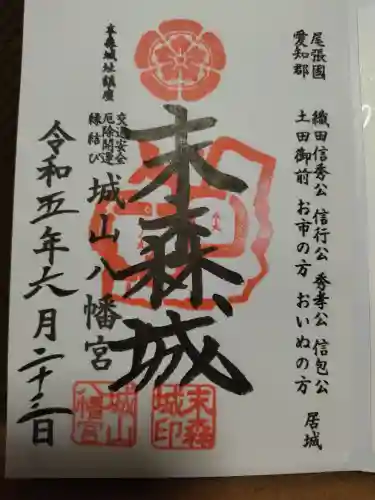 尾張國
愛知郡
織田信秀公 信行公 秀孝公 信包公
土田御前 お市の方 おいぬの方
居城
末森城
末森城址鎮座
交通安全
厄除開運
縁結び
城山八幡宮
令和五年六月二十三日
末森
城印
城山
八幡宮